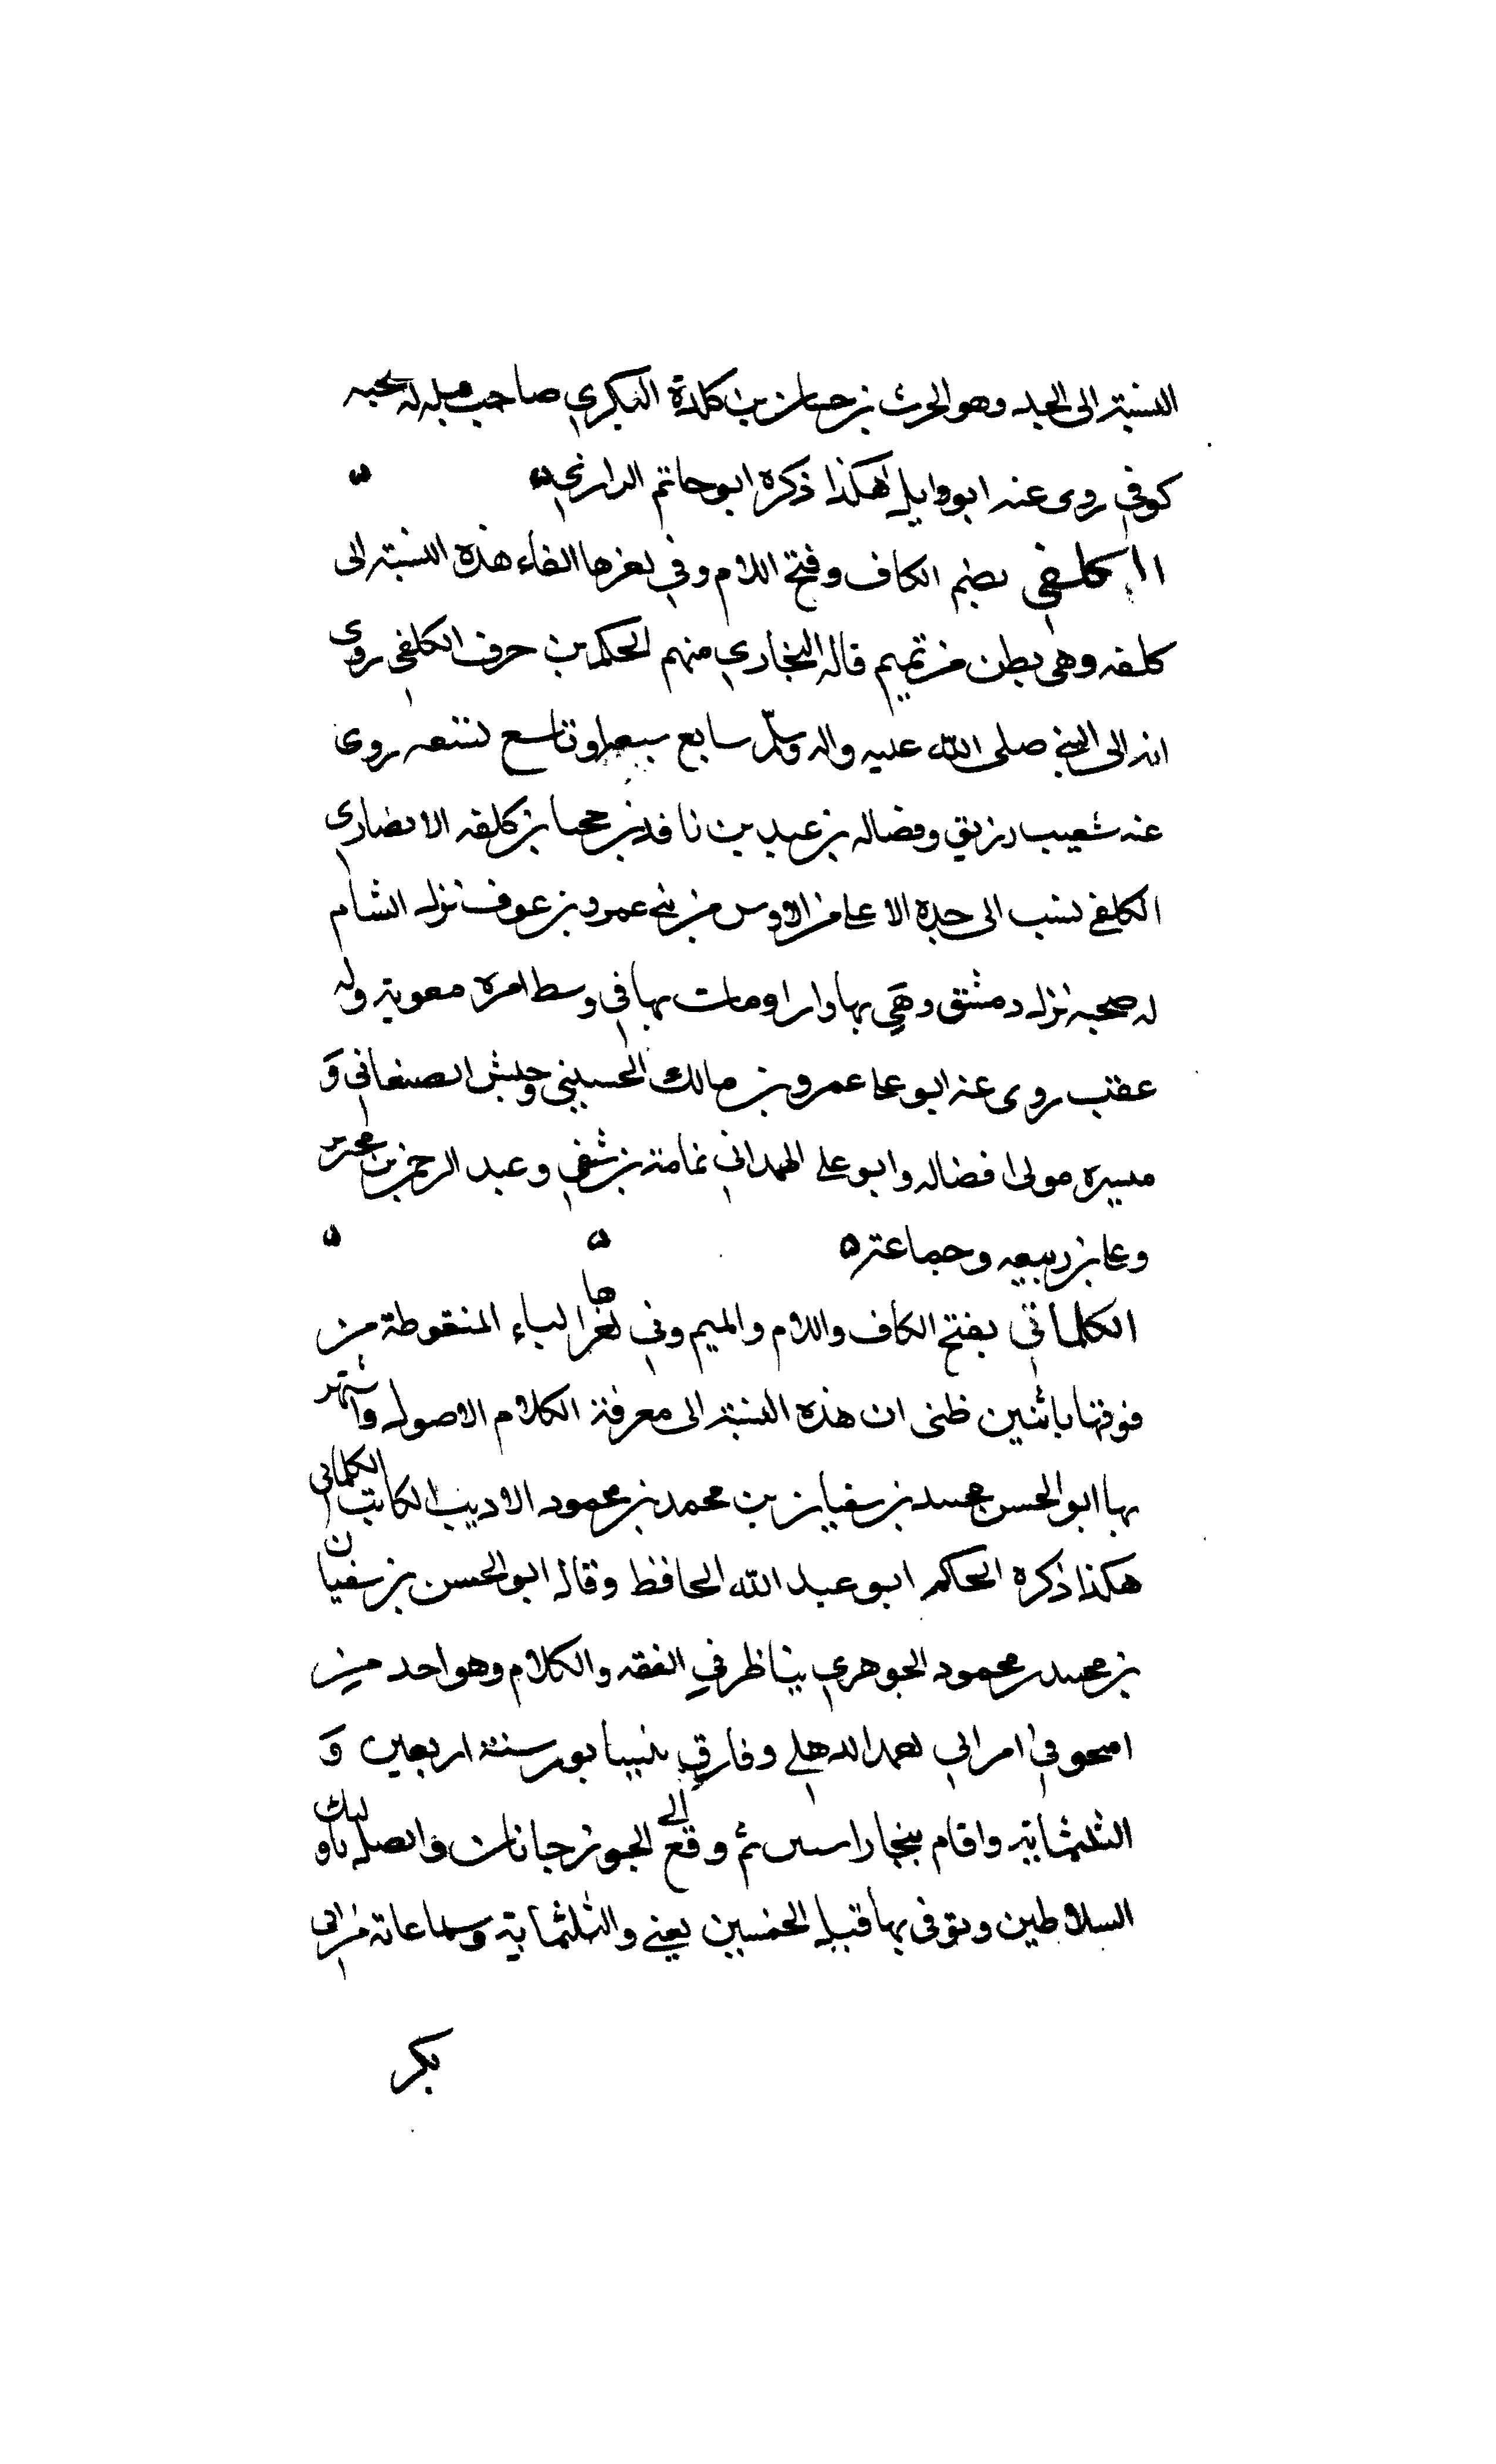 النسبة الى الجد وهو الحرث بن حسان بن كلدة البكري صاحب قيله له صحبه
كوفي روى عنه ابو وايل هكذا ذكره ابو حاتم الرازي
الكلفي بضم الكاف وفتح اللام وفي اخرها الفاء هذه النسبة الى
كلفه وهي بطن من تميم قاله البخاري منهم الحكم بن حزن الكلفي روى
انه الى النبي صلى الله عليه واله وسلم سابع سبعة او تاسع تسعه روى
عنه شعيب رزيق وفضاله بن عبيد بن نافد بن جحبا بن كلفه الانصاري
الكلفي نسب الى جده الاعلى من الاوس من بني عمرو بن عوف نزل الشام
له صحبه نزل دمشق وهي بها دارا ومات بها في وسط امرة معوية وله
عقب روى عنه ابو على عمرو بن مالك الحسيني وحنش الصنعاني و
ميسره مولى فضاله وابو علي الهمداني ثمامة بن شفي وعبد الرحمن بن محيريز
وعلى بن ربيعه وجماعة
الكلماتي بفتح الكاف واللام والميم وفي اخرها التاء المنقوطة من
فوقها باثنين ظني ان هذه النسبة الى معرفة الكلام الاصول واشتهر
بها ابو الحسن محمد بن سفيان بن محمد بن محمود الاديب الكاتب الكلماتي
هكذا ذكره الحاكم ابو عبد الله الحافظ وقال ابو الحسن بن سفيان
بن محمد بن محمود الجوهري يناظر في الفقه والكلام وهو احد من
وفارق نيسابور سنة اربعين و
الثلثماية واقام ببخارا سنين ثم وقع الى الجوزجانان واتصل باوليك
السلاطين وتوفى بها قبل الخمسين يعني والثلثماية وسماعاته من ابي
بكر